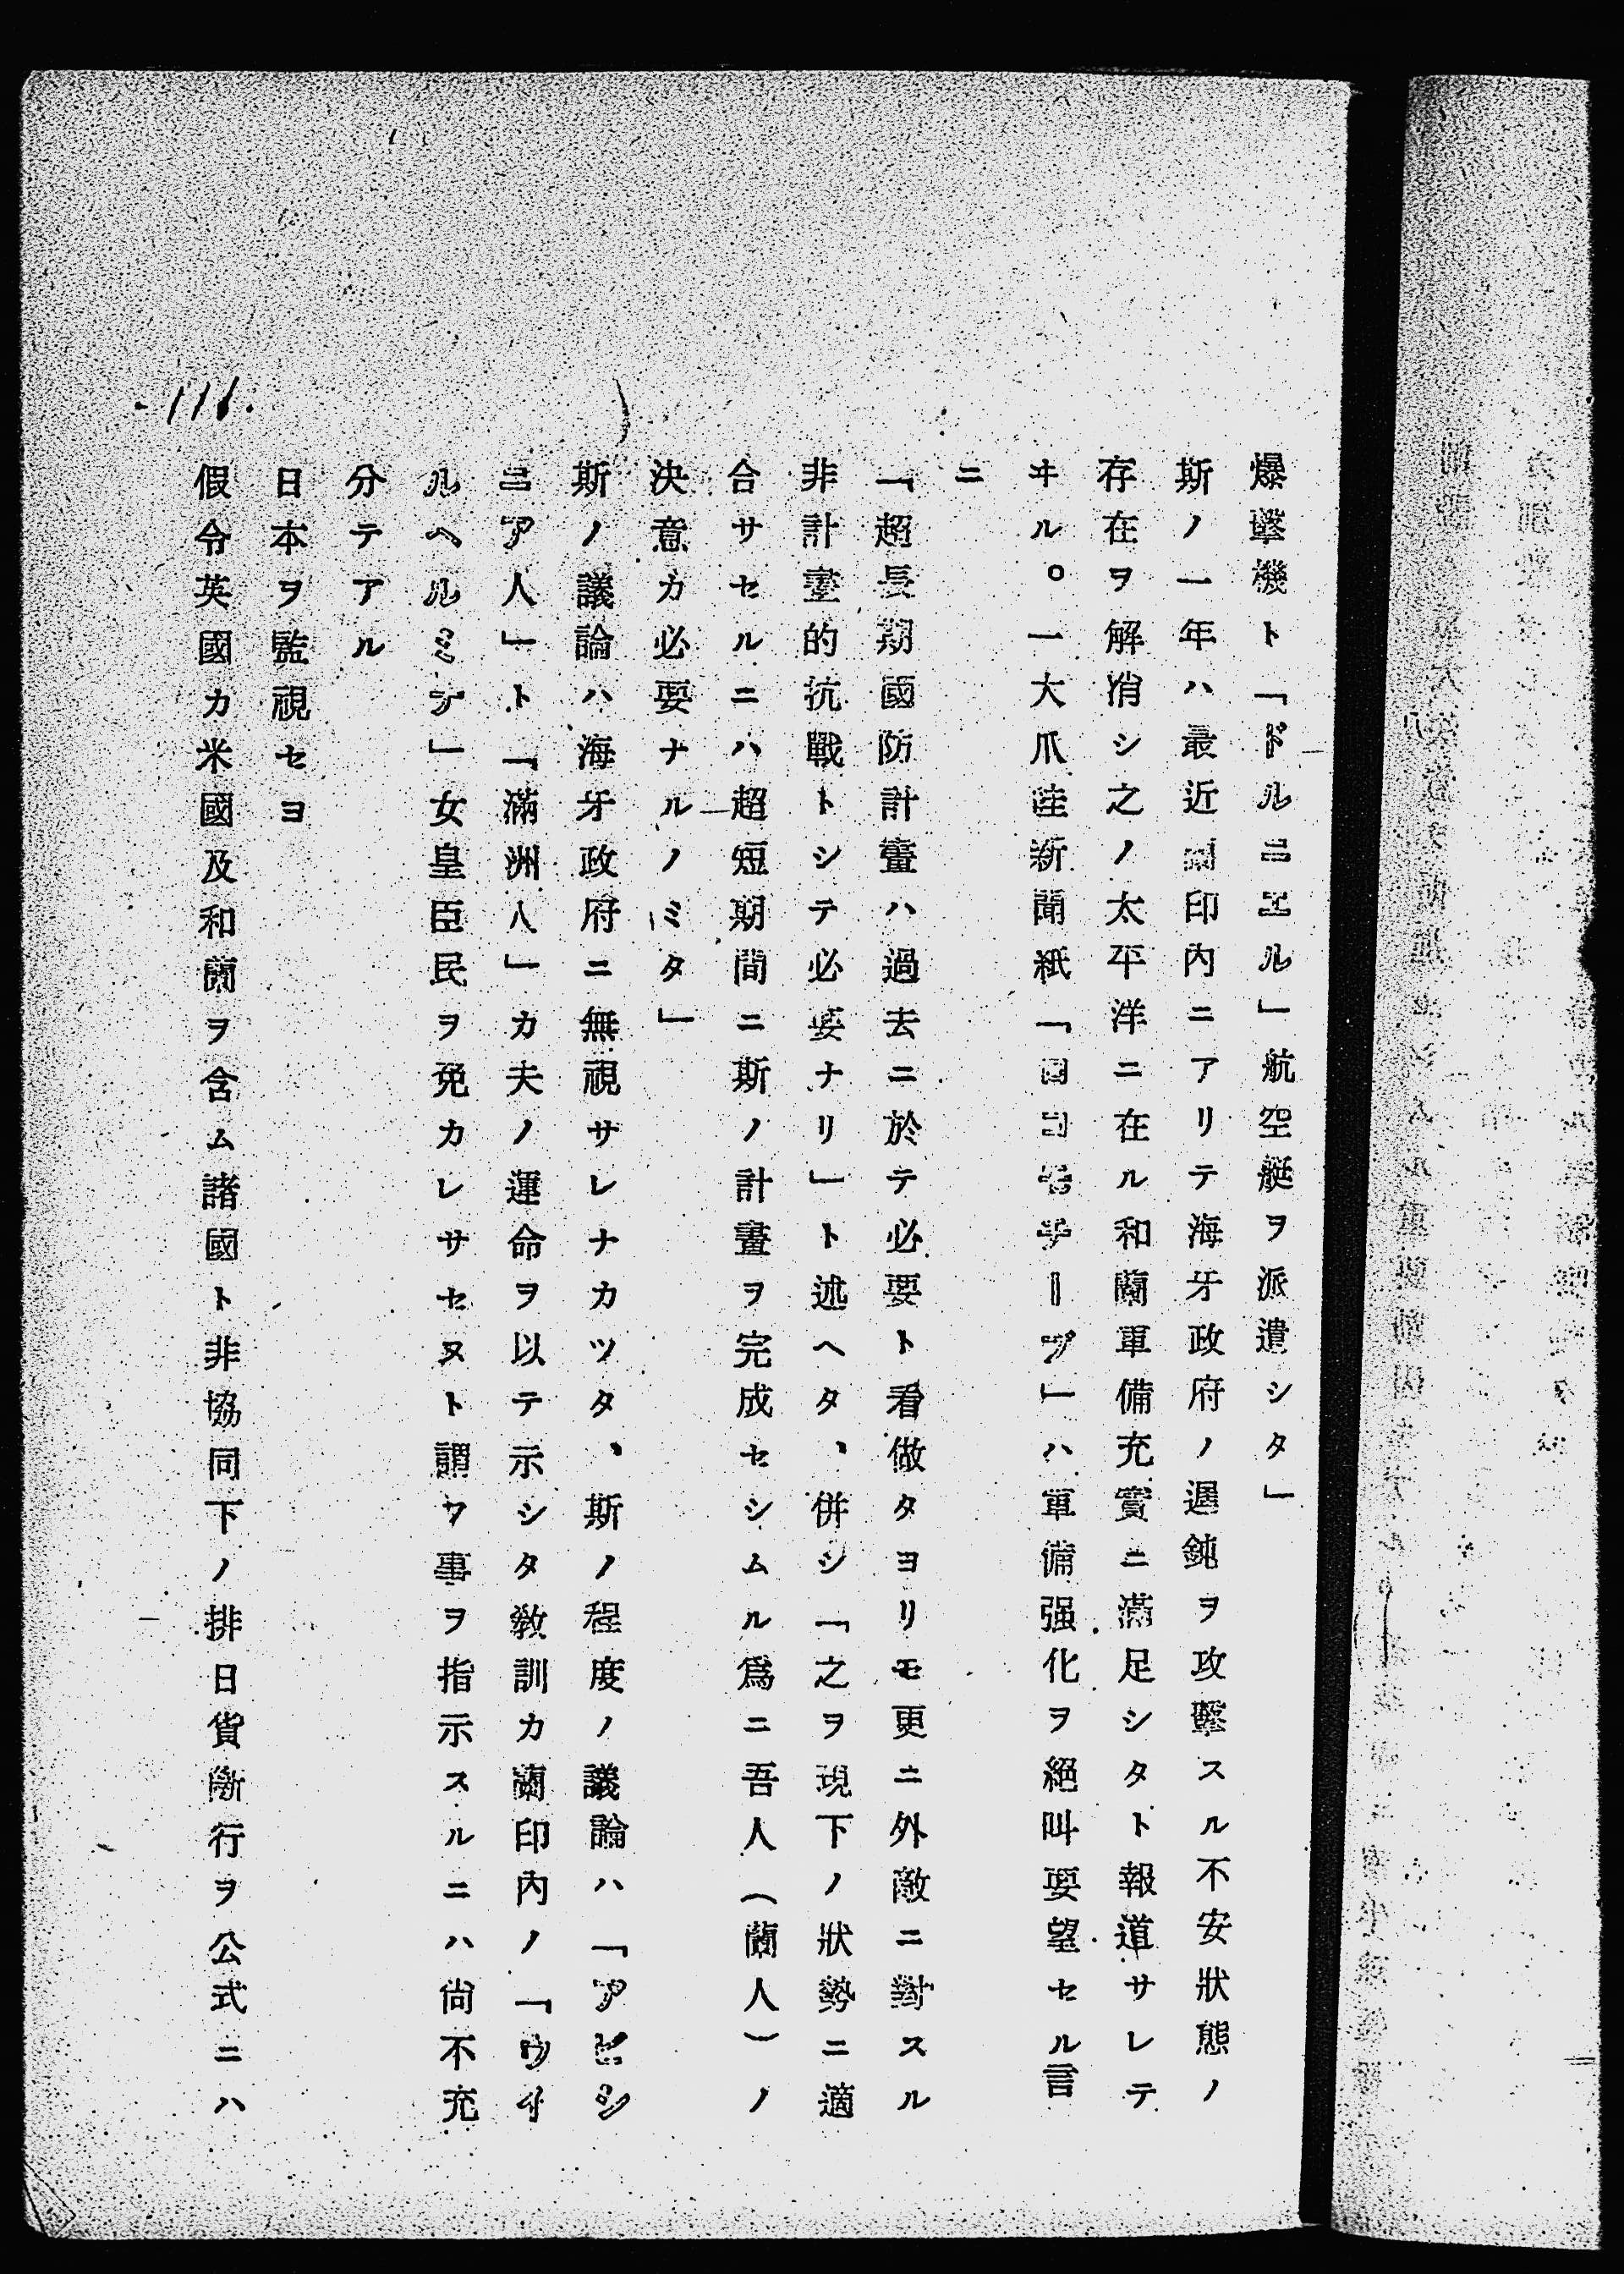 爆擊機ト「ドルニエル」航空艇ヲ派遣シタ」
斯ノ一年ハ最近蘭印內ニアリテ海牙政府ノ遲鈍ヲ攻擊スル不安狀態ノ
存在ヲ解消シ之ノ太平洋ニ在ル和蘭軍備充實ニ滿足シタト報道サレテ
ヰル。一大爪哇新聞紙「ロコモチーフ」ハ軍備强化ヲ絕叫要望セル言
ニ
「超長期國防計畫ハ過去ニ於テ必要ト看做タヨリモ更ニ外敵ニ對スル
非計畫的抗戰トシテ必要ナリ」ト述ヘタ、併シ「之ヲ現下ノ狀勢ニ適
合サセルニハ超短期間ニ斯ノ計畫ヲ完成セシムル爲ニ吾人(蘭人)ノ
決意カ必要ナルノミタ」
斯ノ議論ハ海牙政府ニ無視サレナカツタ、斯ノ程度ノ議論ハ「アビシ
ニア人」ト「滿洲人」カ夫ノ運命ヲ以テ示シタ敎訓カ蘭印內ノ「ウイ
ルヘルミナ」女皇臣民ヲ免カレサセヌト謂フ事ヲ指示スルニハ尙不充
分テアル
日本ヲ監視セヨ
假令英國カ米國及和蘭ヲ含ム諸國ト非協同下ノ排日貨斷行ヲ公式ニハ
-116.